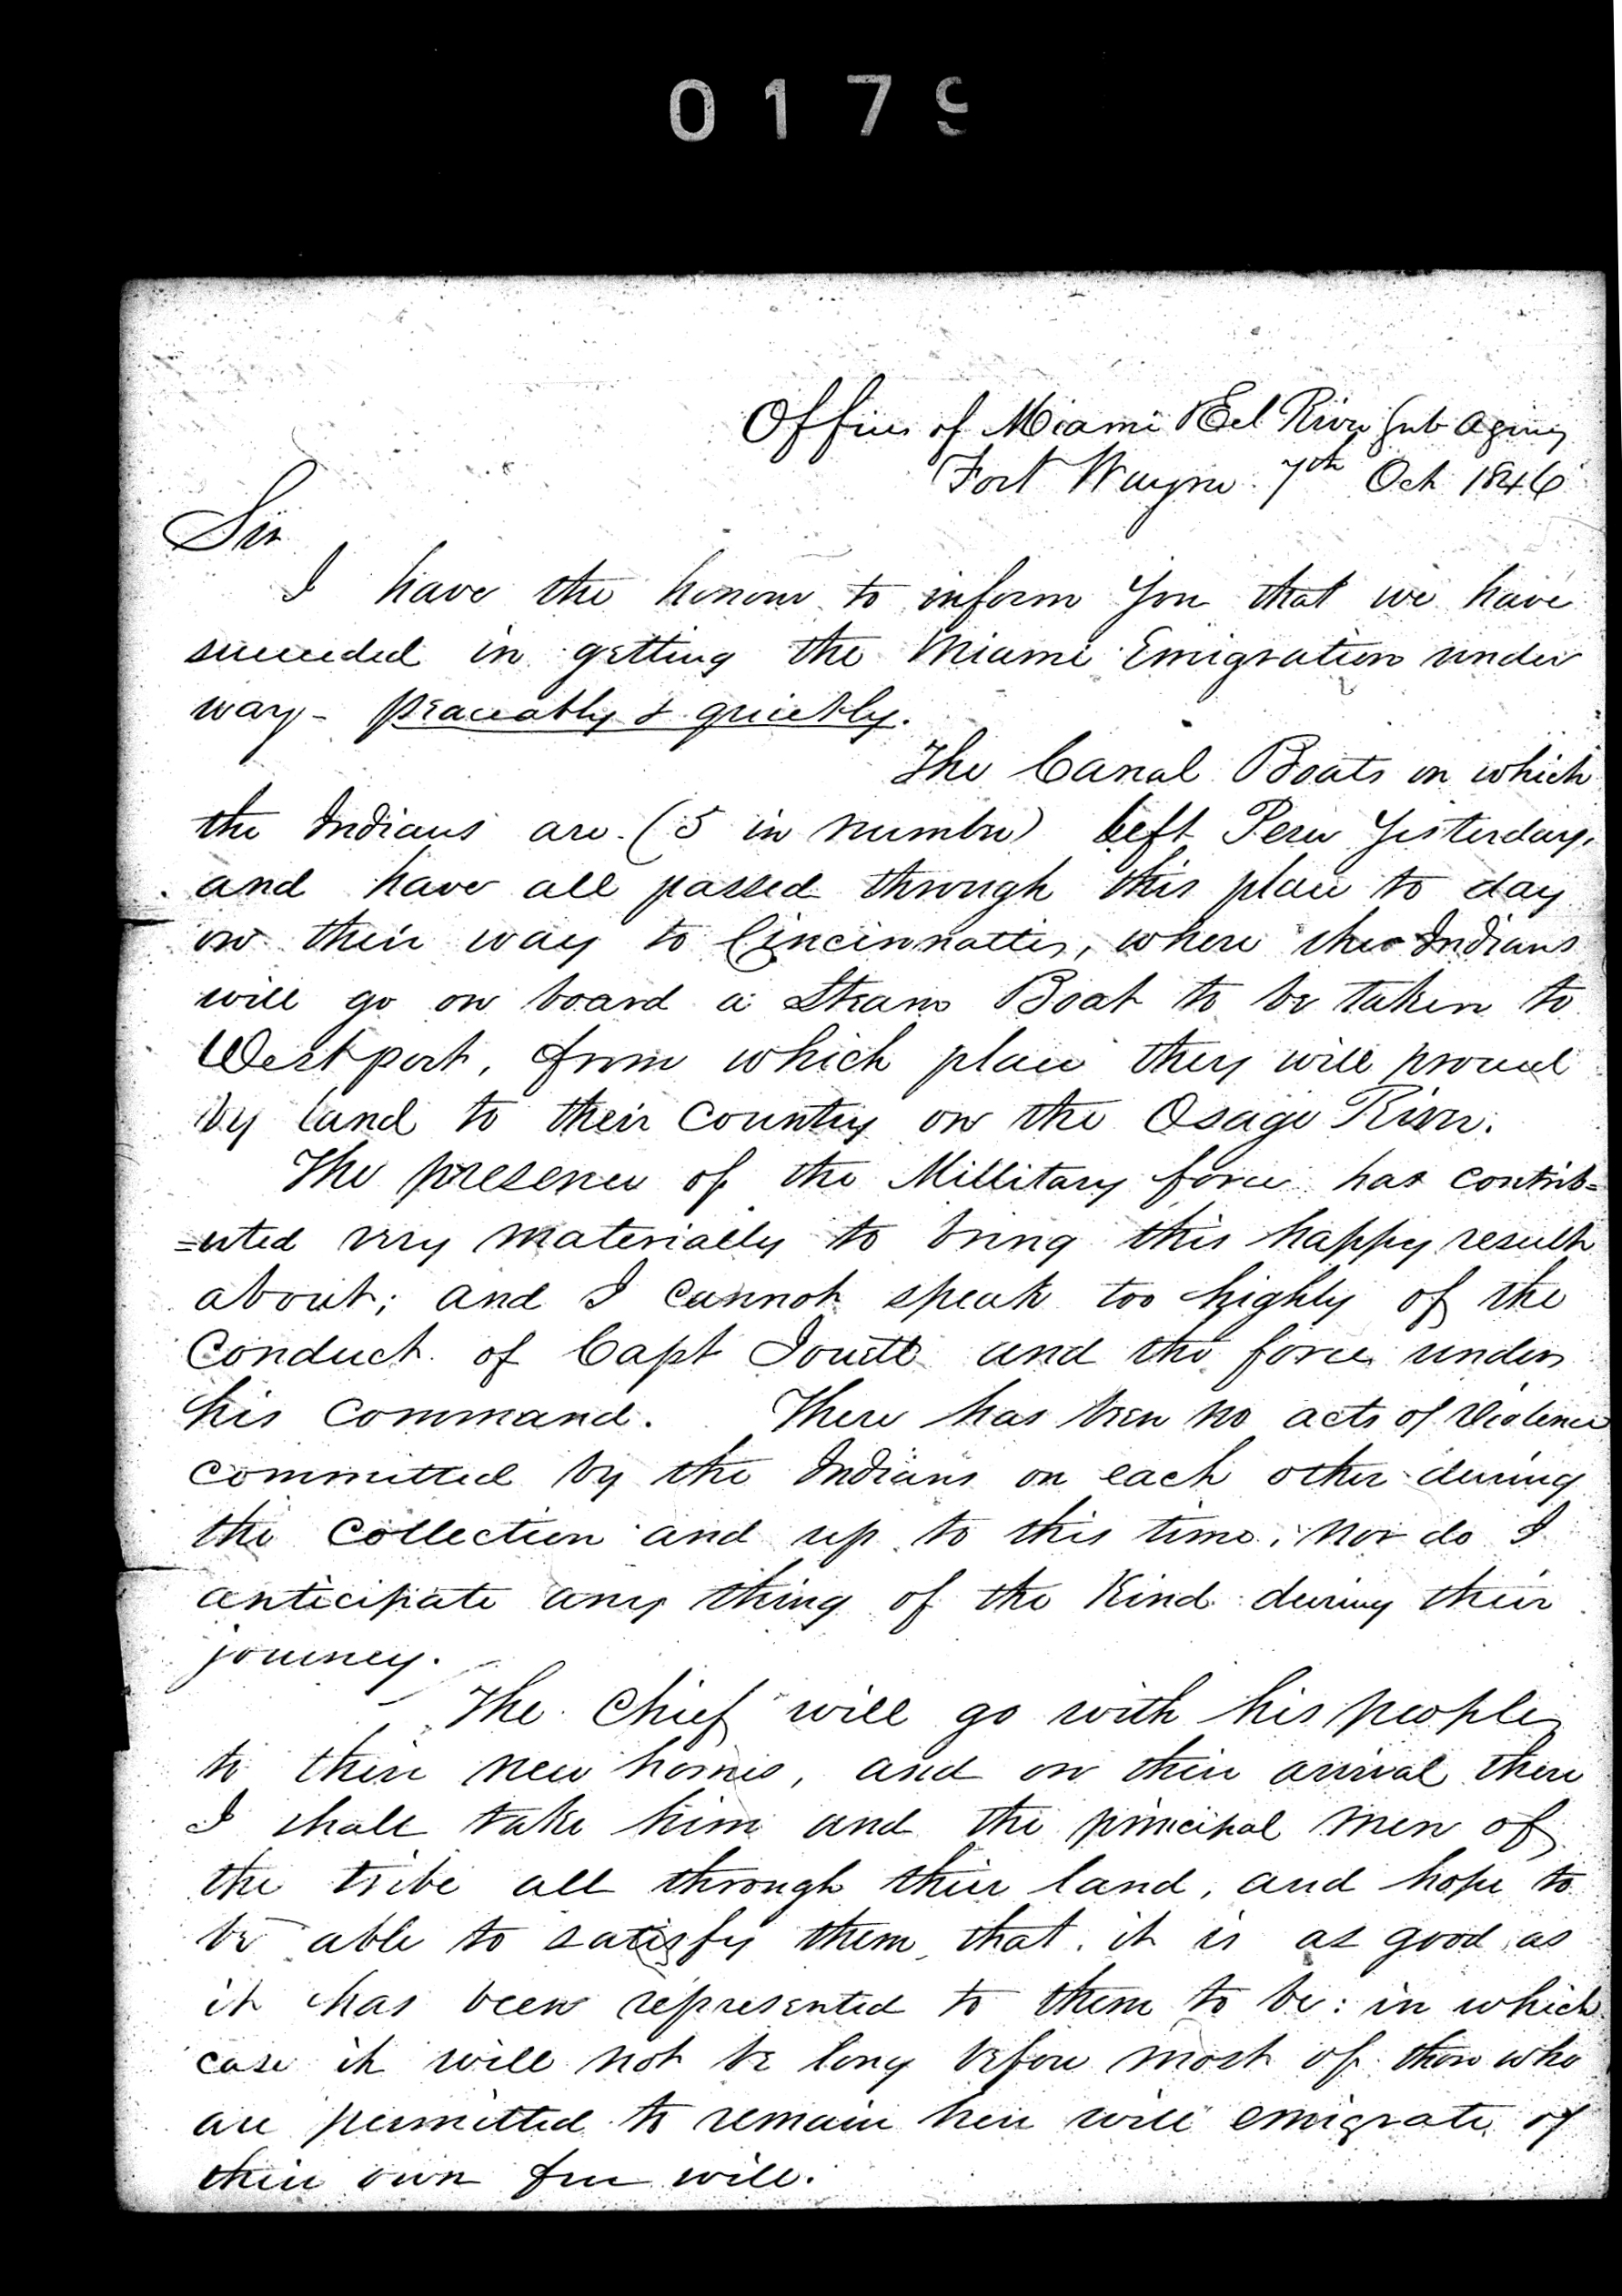 0179
Office of Miami & Eel River Sub Agency
Fort Wayne. 7th Oct 1846
Sir
I have the honour to inform you that we have
succeeded in getting the Miami Emigration under
way - peaceably & quietly.
The Canal Boats on which
the Indians are (5 in number) left Peru Yesterday,
and have all passed through this place to day
on their way to Cincinnatti, where the Indians
will go on board a Steam Boat to be taken to
Westport, from which place they will proceed
by land to their country on the Osage River.
The presence of the Millitary force has contrib=
=uted very materially to bring this happy result
about; and I cannot speak too highly of the
conduct of Capt Jouett and the force under
his command. There has been no acts of violence
committed by the Indians on each other during
the collection and up to this time, nor do I
anticipate any thing of the Kind during their
journey.
The Chief will go with his people
to their new homes, and on their arrival there
I shall take him and the principal men of
the tribe all through their land, and hope to
be able to satisfy them, that it is as good as
it has been represented to them to be: in which
case it will not be long before most of those who
are permitted to remain here will emigrate of
their own free will.